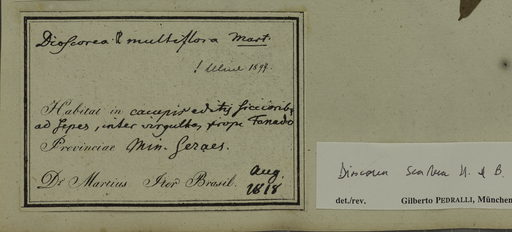 Dioscorea multiflora Mart.
! Uline 1897.
Habitat in campis editis siccioribs
ad sepes, inter virgulta, prope Fanado
Provinciae Min. Geraes.
Dr Martius Iter Brasil. Aug.
1818
Dioscorea H. & B.
det./rev. Gilberto PEDRALLI, München